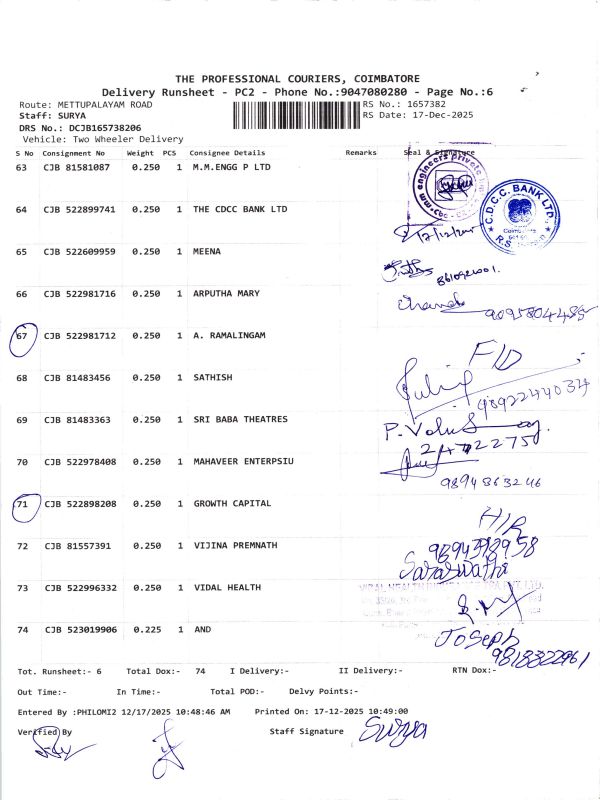 THE PROFESSIONAL COURIERS, COIMBATORE
Delivery Runsheet - PC2 - Phone No.:9047080280 - Page No.:6
Route: METTUPALAYAM ROAD RS No.: 1657382
Staff: SURYA RS Date: 17-Dec-2025
DRS No.: DCJB165738206
Vehicle: Two Wheeler Delivery
S No Consignment No Weight PCS Consignee Details Remarks Seal & Signature
63 CJB 81581087 0.250 1 M.M.ENGG P LTD
64 CJB 522899741 0.250 1 THE CDCC BANK LTD
C.D.C.C. BANK LTD.
65 CJB 522609959 0.250 1 MEENA
66 CJB 522981716 0.250 1 ARPUTHA MARY
9095804485
67 CJB 522981712 0.250 1 A. RAMALINGAM
68 CJB 81483456 0.250 1 SATHISH
69 CJB 81483363 0.250 1 SRI BABA THEATRES
70 CJB 522978408 0.250 1 MAHAVEER ENTERPSIU
9894863246
71 CJB 522898208 0.250 1 GROWTH CAPITAL
72 CJB 81557391 0.250 1 VIJINA PREMNATH
Saraswathi
73 CJB 522996332 0.250 1 VIDAL HEALTH
74 CJB 523019906 0.225 1 AND
Joseph
Tot. Runsheet:- 6 Total Dox:- 74 I Delivery:- II Delivery:- RTN Dox:-
Out Time:- In Time:- Total POD:- Delvy Points:-
Entered By :PHILOMI2 12/17/2025 10:48:46 AM Printed On: 17-12-2025 10:49:00
Verified By Staff Signature Surya